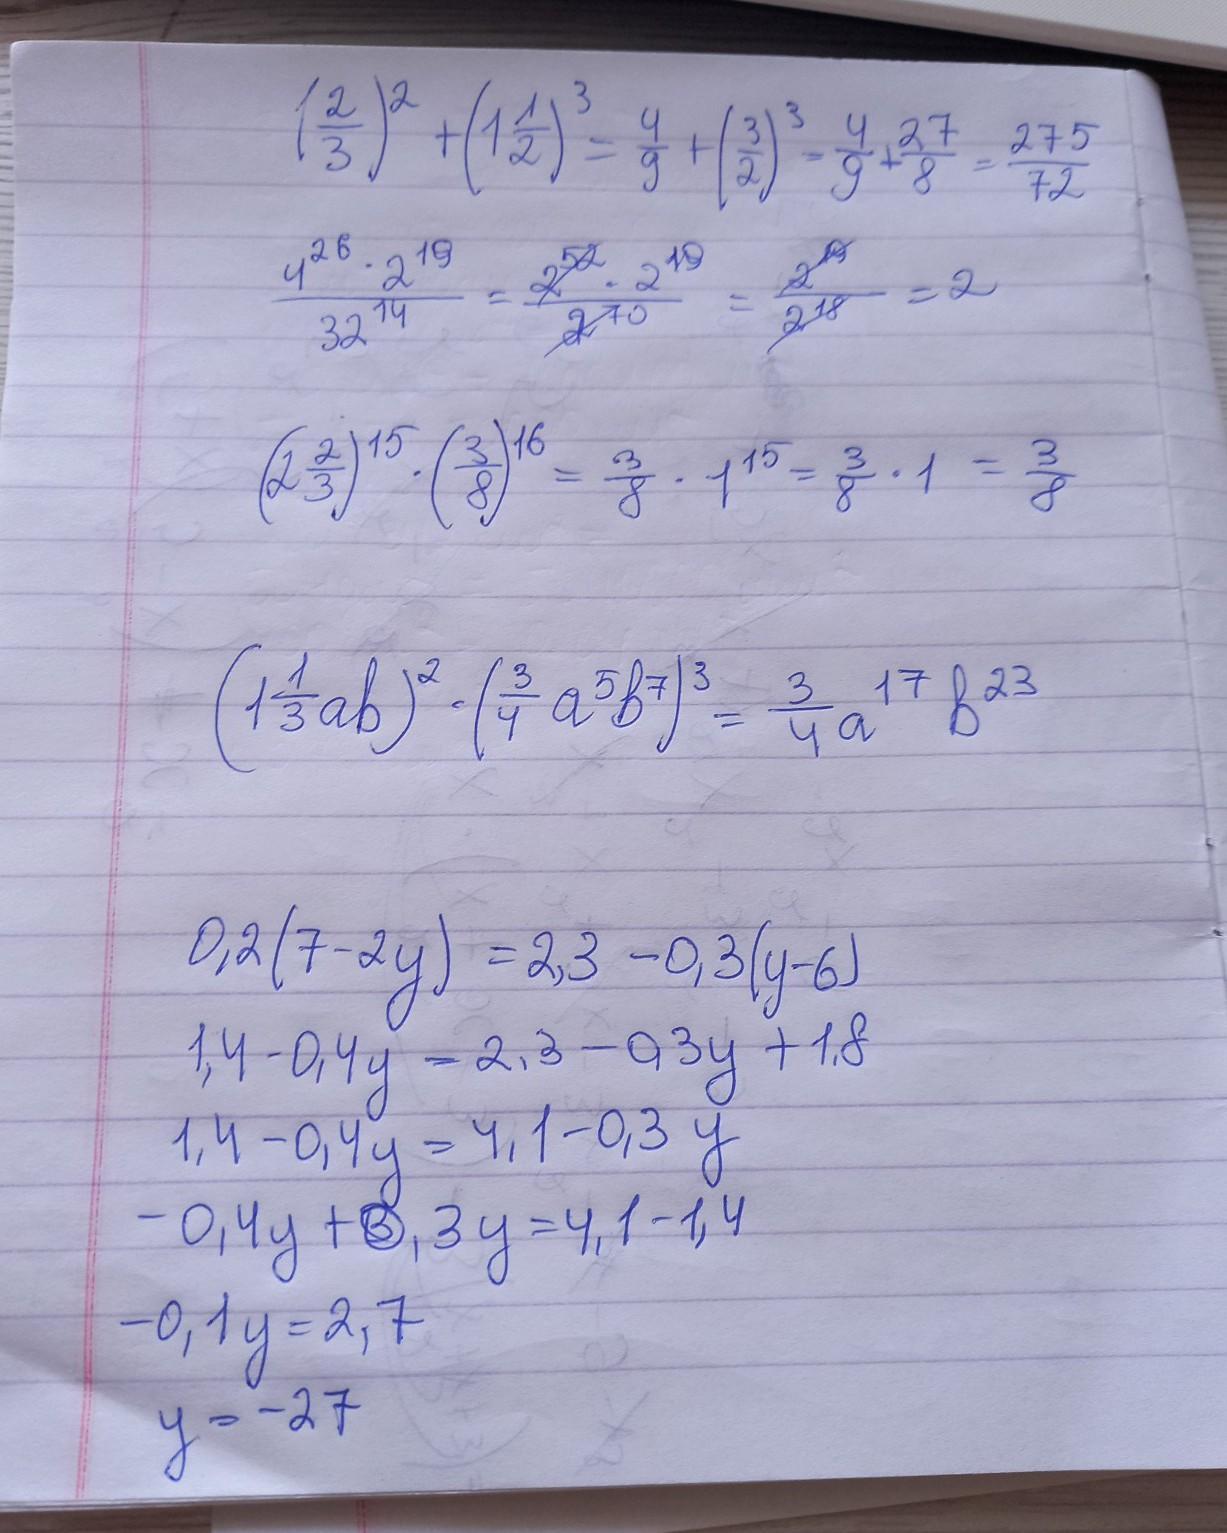 (2/3)² + (1 1/2)³ = 4/9 + (3/2)³ = 4/9 + 27/8 = 275/72
4²⁶ · 2¹⁹ / 32¹⁴ = 2⁵² · 2¹⁹ / 2⁷⁰ = 2¹⁹ / 2¹⁸ = 2
(2 2/3)¹⁵ · (3/8)¹⁶ = 3/8 · 1¹⁵ = 3/8 · 1 = 3/8
(1 1/3 ab)² · (3/4 a⁵b⁷)³ = 3/4 a¹⁷ b²³
0,2(7-2y) = 2,3 - 0,3(y-6)
1,4 - 0,4y = 2,3 - 0,3y + 1,8
1,4 - 0,4y = 4,1 - 0,3y
-0,4y + 0,3y = 4,1 - 1,4
-0,1y = 2,7
y = -27